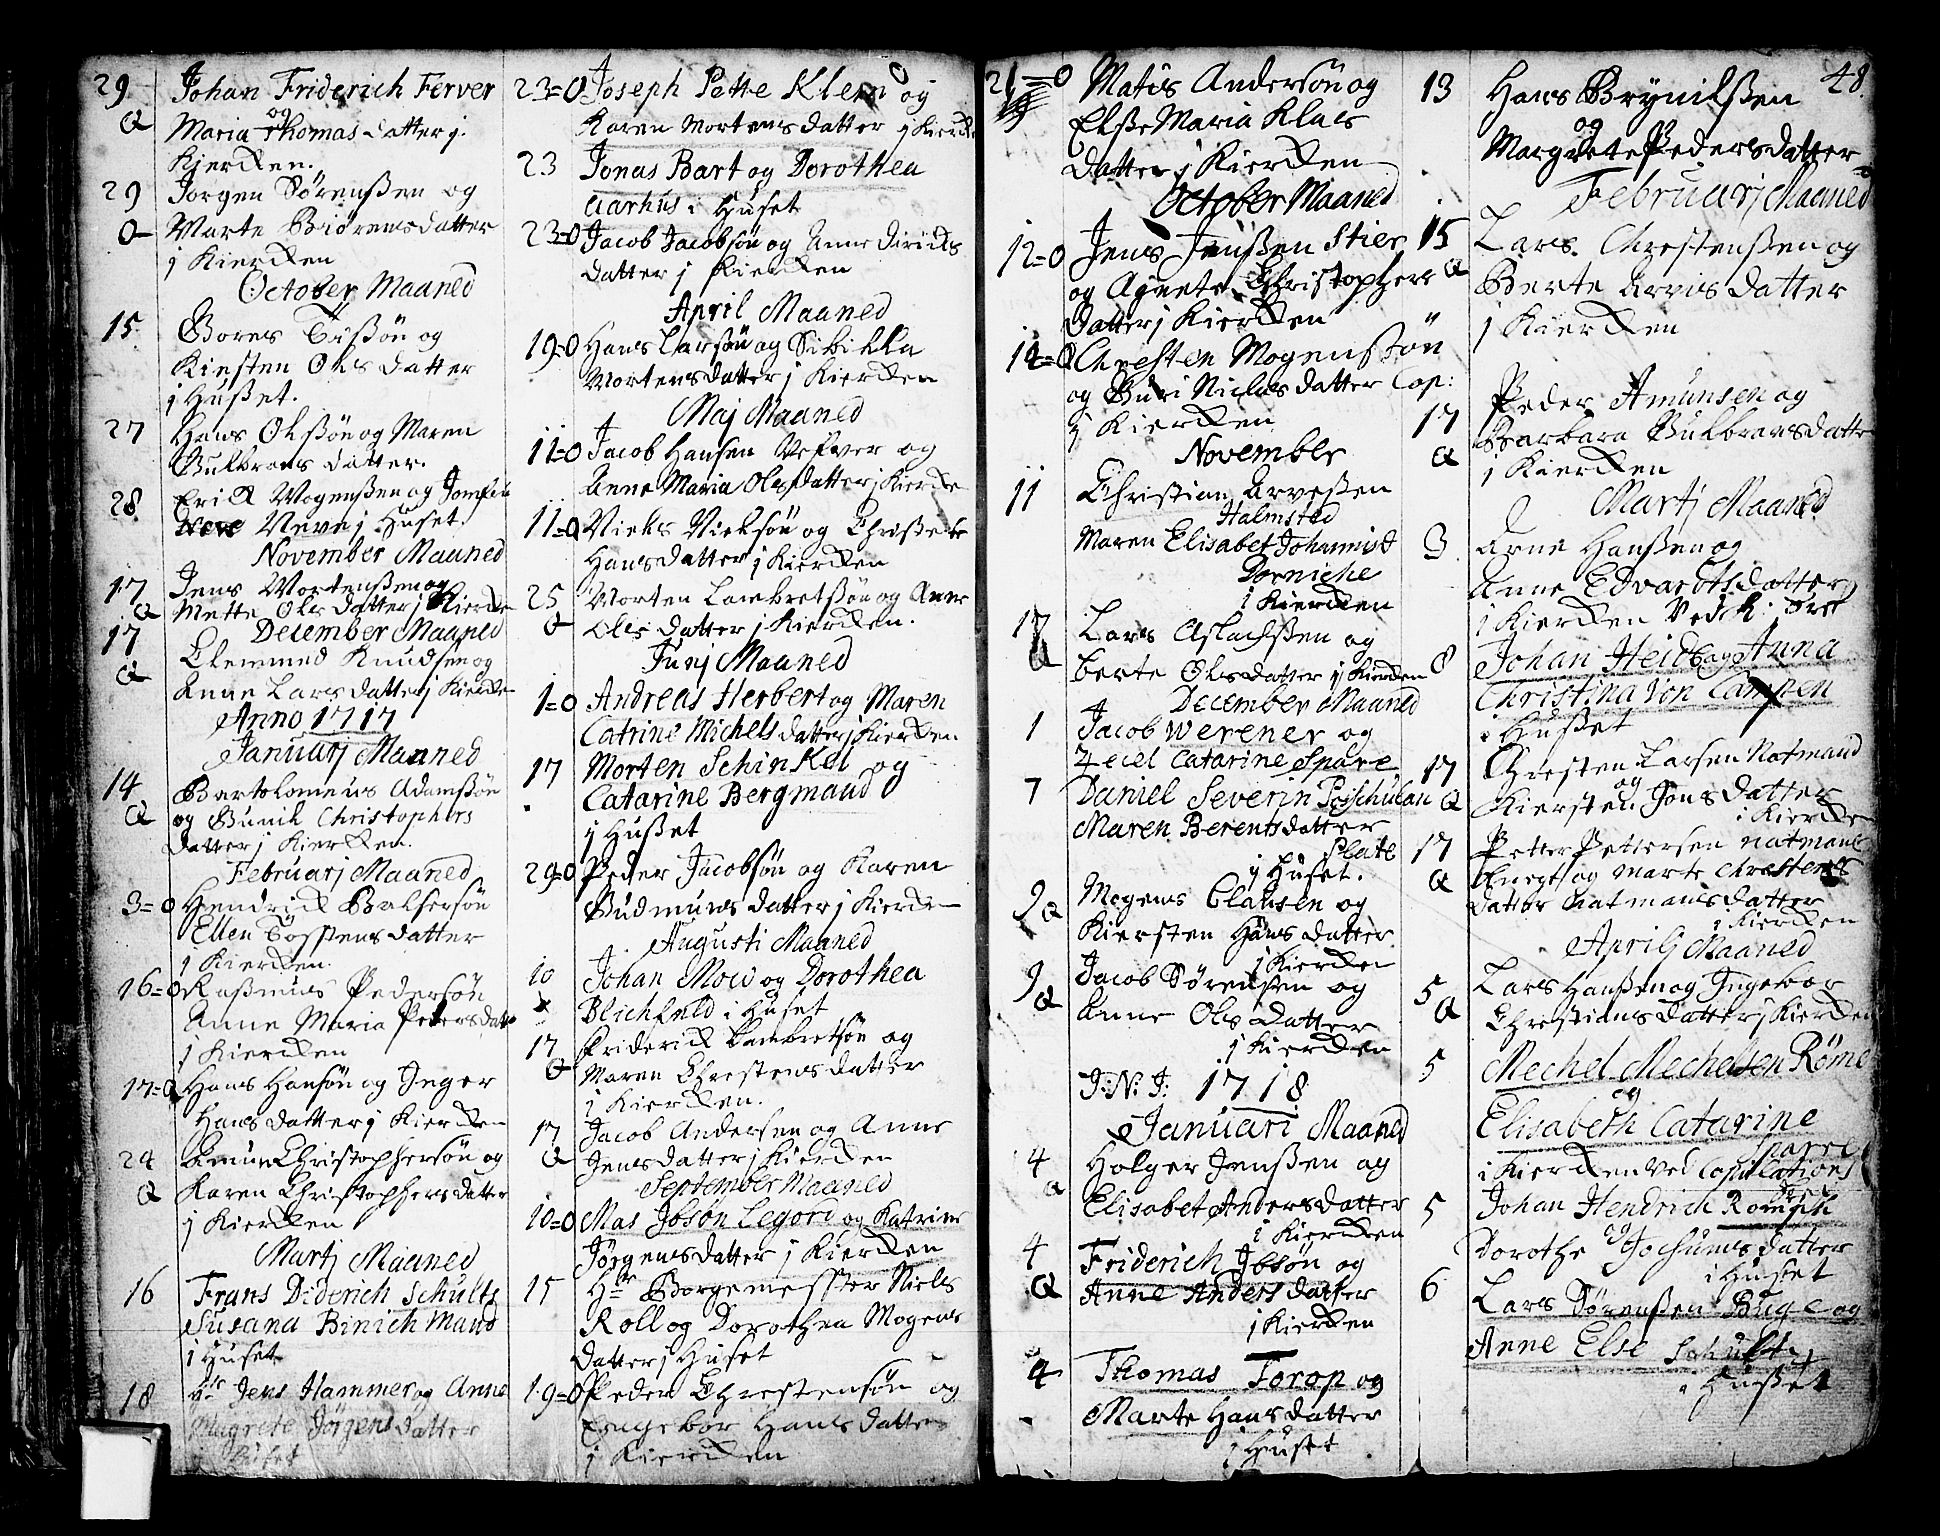 29. Johan Friderich Ferver
og
Maria Thomas datter j.
Kiercken.
29 Jorgen Sørenssen og
Marte Biørensdatter
j Kiercken
October Maaned
15. Bores
Kiesten Ols datter
j Husset.
27 Hans Olssøn og Maren
Gulbrans datter.
28. Erick Mogenssen og Jomfru
Neve j Huset.
November Maaned
17 Jens Mortenssen og
Mette Ols datter j Kiercken
December Maaned
17 Clemmed Knudsen og
Anne Larsdatter j Kiercken
Anno 1717
Januarj Maaned
14 Bartolomeus Adamssøn
og Gunil Christophers
datter j Kiercken.
Februarj Maaned
3=0 Hendrick Balsersøn
Ellen datter
j Kiercken.
16=0 Rassmus Pedersøn
Anne Maria Petersdatter
j Kiercken
17=0 Hans Hansøn og Inger
Hansdatter j Kiercken
24 Amun Christophersøn og
Karen Christophersdatter
j Kiercken
Martj Maaned
16 Frans Diderich Schults
Susana Binich Mand
i Huset
18 Hr Jens Hammer og Anne
Magrete Jørgensdatter
j Huset
23=0 Joseph Pette Klein og
Karen Mortensdatter j Kiercken
23 Jonas Bart og Dorothea
Aarhus i Huset
23=0 Jacob Jacobsøn og Anne Diricks
datter j Kiercken
April Maaned
19=0 Hans Larsøn og Sibilla
Mortensdatter j Kiercken
Maj Maaned
11=0 Jacob Hansen Vefver og
Anne Maria Olsdatter j Kiercken
11=0 Niels Nielsøn og Chrissete
Hansdatter j Kiercken
25 Morten Lambretssøn og Anne
Olsdatter j Kiercken.
Junj Maaned
1=0 Andreas Herbert og Maren
Catrine Michels datter j Kiercken
17 Morten Schinkel og
Catarine Bergmand
j Husset
29=0 Peder Jacobsøn og Karen
Gudmunsdatter j Kiercken
Augusti Maaned
10 Johan Mow og Dorothea
Blichfeld i Huset
17 Friderick Lambretsøn og
Maren Chrestensdatter
j Kiercken.
17 Jacob Andersen og Anne
Jensdatter j Kiercken
September Maaned
10=0 Mas Ibsøn Legori og Katrine
Jørgensdatter j Kiercken
15 Hr Borgemester Niels
Roll og Dorothea Mogens
datter j Huset
19=0 Peder Chrestensøn og
Engebor Hansdatter
j Kiercken
21=0 Matis Andersøn og
Elsse Maria Klaes
datter j Kiercken
October Maaned
12=0 Jens Jenssen Stier
og Agnete Christophers
datter j Kiercken
12=0 Chresten Mogenssøn
og Guri Niclas datter Cop:
j Kiercken
November
11 Christian Arvessen
Halmsted
Maren Elisabet Johannist
Dorniche
i Kiercken
17 Lars Aslachssen og
berte Olsdatter j Kiercken
December Maaned
1 Jacob Werener og
Zeciel Catarine Spare
7 Daniel Severin
Maren Berentsdatter
Plate
i Huset.
9 Mogens Clausen og
Kiersten Hansdatter
j Kiercken
9 Jacob Sørensen og
Anne Olsdatter
j Kiercken
J: N: J: 1718
Januari Maaned
4 Holger Jenssen og
Elisabet Andersdatter
i Kiercken
4 Friderich Ibsøn og
Anne Anders datter
j Kiercken
4 Thomas Torop og
Marte Hansdatter
i Huset
48.
13 Hans Brynilssen
og
Margrete Pedersdatter
Februarj Maaned
15 Lars Chrestenssen og
Berte Arvis datter
j Kiercken
17 Peder Amunsen og
Barbara Gulbransdatter
j Kiercken
Martj Maaned
3 Arne Hanssen og
Anne Edvardtsdatter
i Kiercken Ved
8 Johan Heid og Anna
Christina von Campen
i Husset
17 Chresten Larsen Natmand
og
Kiersten Jonsdatter
i Kiercken
17 Petter Pettersen natmans
og Marte Chrestens
datter natmansdatter
i Kiercken
Aprilj Maaned
5 Lars Hanssen og Ingebor
Chrestiansdatter j Kiercken
5 Mechel Mechelsen Röme
og
Elisabeth Catarine
Spare
i Kiercken ved Copulations
5 Johan Hendrich Romsch
og
Dorothe Jochums datter
i Huset
6 Lars Sørenssen Buge og
Anne Else Schult
i Husset